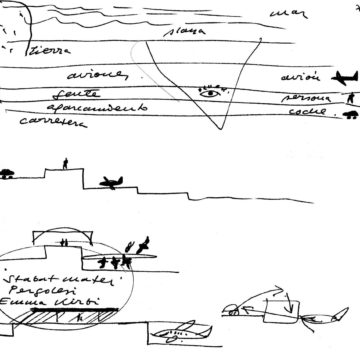 mar
playa
tierra
aviones
avión
gente
persona
aparcamiento
coche
carretera
"Stabat mater"
Pergolesi
Emma Kirbi